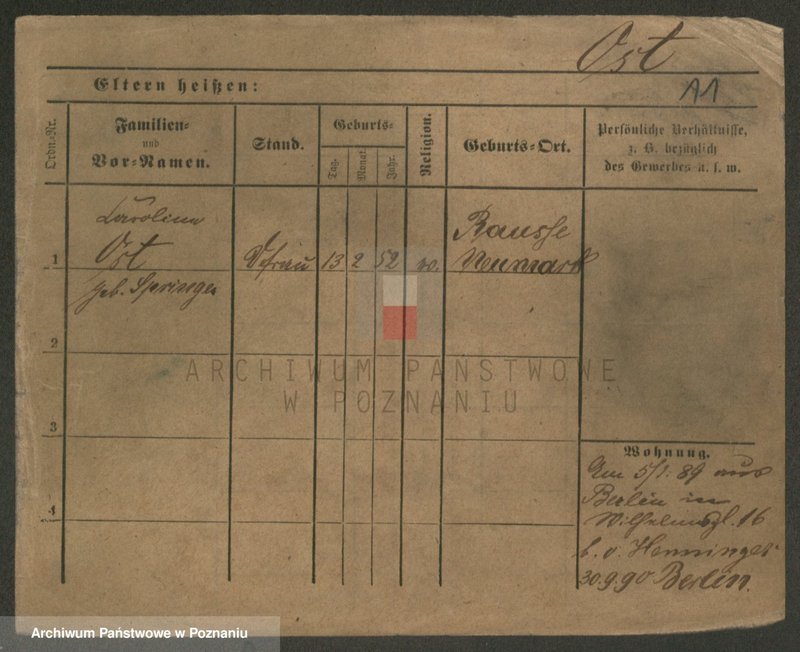 Ost
11
Eltern heißen:
Ordn.-Nr.
Familien-
und
Vor-Namen.
Stand.
Geburts-
Tag.
Monat.
Jahr.
Religion.
Geburts-Ort.
Persönliche Verhältnisse,
z. B. bezüglich
des Gewerbes u. s. w.
1
Caroline
Ost
geb. Springer
13
2
52
Neumark
2
3
4
Wohnung.
Am 5/1. 89 aus
Berlin in
Wilhelmspl. 16
b. v. Henninges
30.9.90 Berlin.
ARCHIWUM PAŃSTWOWE
W POZNANIU
Archiwum Państwowe w Poznaniu